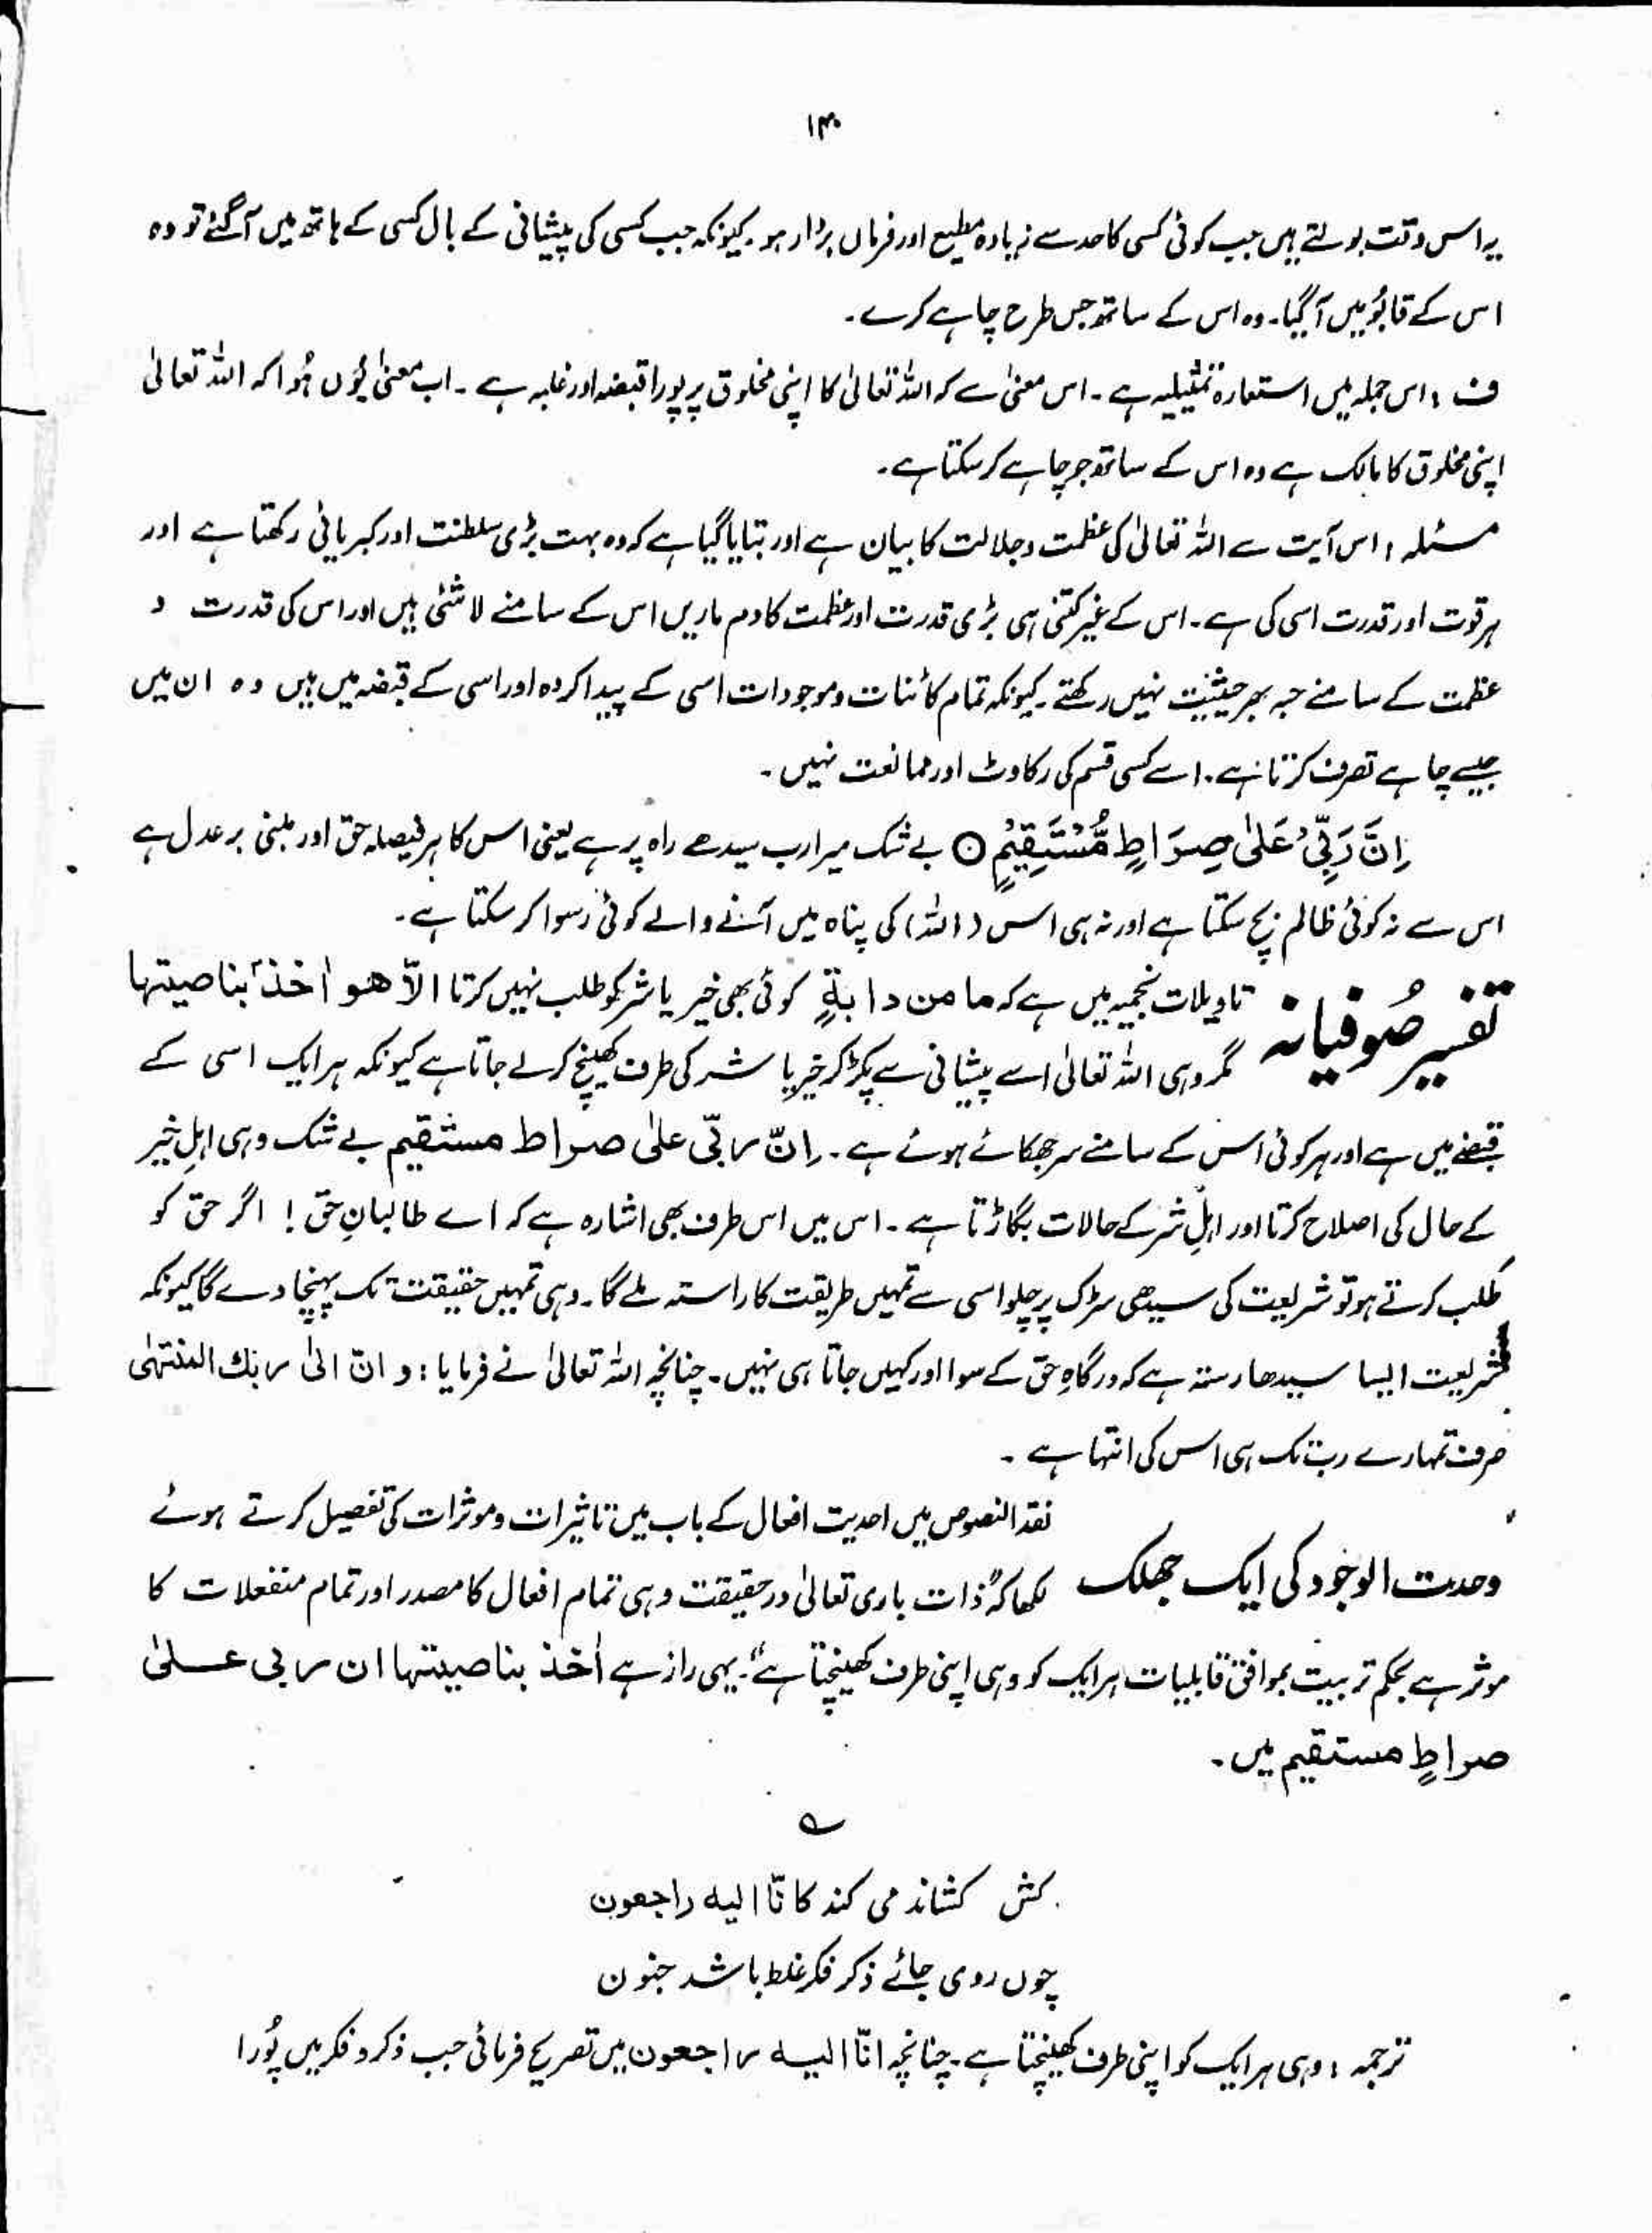 ۱۳۰
یہ اس وقت بولتے ہیں جب کوئی کسی کا حد سے زیادہ مطیع اور فرماں بردار ہو۔ کیونکہ جب کسی کی پیشانی کے بال کسی کے ہاتھ میں آ گئے تو وہ
اس کے قابُو میں آگیا۔ وہ اس کے ساتھ جس طرح چاہے کرے۔
ف : اس جملہ میں استعارہ تمثیلیہ ہے۔ اس معنیٰ سے کہ اللہ تعالیٰ کا اپنی مخلوق پر پورا قبضہ اور غلبہ ہے۔ اب معنیٰ یُوں ہُوا کہ اللہ تعالیٰ
اپنی مخلوق کا مالک ہے وہ اس کے ساتھ جو چاہے کر سکتا ہے۔
مسئلہ : اس آیت سے اللہ تعالیٰ کی عظمت و جلالت کا بیان ہے اور بتایا گیا ہے کہ وہ بہت بڑی سلطنت اور کبریائی رکھتا ہے اور
ہر قوت اور قدرت اسی کی ہے۔ اس کے غیر کتنی ہی بڑی قدرت اور عظمت کا دم ماریں اس کے سامنے لاشئی ہیں اور اس کی قدرت و
عظمت کے سامنے حبہ بھر حیثیت نہیں رکھتے۔ کیونکہ تمام کائنات و موجودات اسی کے پیدا کردہ اور اسی کے قبضہ میں ہیں وہ ان میں
جیسے چاہے تصرف کرتا ہے۔ اسے کسی قسم کی رکاوٹ اور ممانعت نہیں۔
اِنَّ رَبِّیْ عَلٰی صِرَاطٍ مُّسْتَقِیْمٍ ○ بے شک میرا رب سیدھے راہ پر ہے یعنی اس کا ہر فیصلہ حق اور مبنی بر عدل ہے
اس سے نہ کوئی ظالم بچ سکتا ہے اور نہ ہی اس (اللہ) کی پناہ میں آنے والے کوئی رسوا کر سکتا ہے۔
تفسیر صُوفیانہ تاویلات نجمیہ میں ہے کہ ما من دابةٍ کوئی بھی خیر یا شر کو طلب نہیں کرتا الّا هو اٰخذٌ بناصیتها
مگر وہی اللہ تعالیٰ اسے پیشانی سے پکڑ کر خیر یا شر کی طرف کھینچ کر لے جاتا ہے کیونکہ ہر ایک اسی کے
قبضے میں ہے اور ہر کوئی اس کے سامنے سر جھکائے ہوئے ہے۔ اِنّ ربّی علیٰ صراط مستقیم بے شک وہی اہلِ خیر
کے حال کی اصلاح کرتا اور اہلِ شر کے حالات بگاڑتا ہے۔ اس میں اس طرف بھی اشارہ ہے کہ اے طالبانِ حق! اگر حق کو
طلب کرتے ہو تو شریعت کی سیدھی سڑک پر چلو اسی سے تمہیں طریقت کا راستہ ملے گا۔ وہی تمہیں حقیقت تک پہنچا دے گا کیونکہ
شریعت ایسا سیدھا رستہ ہے کہ درگاہِ حق کے سوا اور کہیں جاتا ہی نہیں۔ چنانچہ اللہ تعالیٰ نے فرمایا : و انّ الیٰ ربك المنتہٰی
صرف تمہارے رب تک ہی اس کی انتہا ہے۔
نقد النصوص میں احدیت افعال کے باب میں تاثیرات و موثرات کی تفصیل کرتے ہوئے
وحدت الوجود کی ایک جھلک لکھا کہ "ذات باری تعالیٰ در حقیقت وہی تمام افعال کا مصدر اور تمام منفعلات کا
موثر ہے بحکم تربیت بموافق قابلیات ہر ایک کو وہی اپنی طرف کھینچتا ہے"۔ یہی راز ہے اٰخذ بناصیتها ان ربی علیٰ
صراطٍ مستقیم میں۔
؎
کش کشاند می کند کانّا الیہ راجعون
چوں روی جائے ذکر فکر غلط باشد جنون
ترجمہ : وہی ہر ایک کو اپنی طرف کھینچتا ہے۔ چنانچہ انّا الیہ راجعون میں تصریح فرمائی جب ذکر و فکر میں پُورا